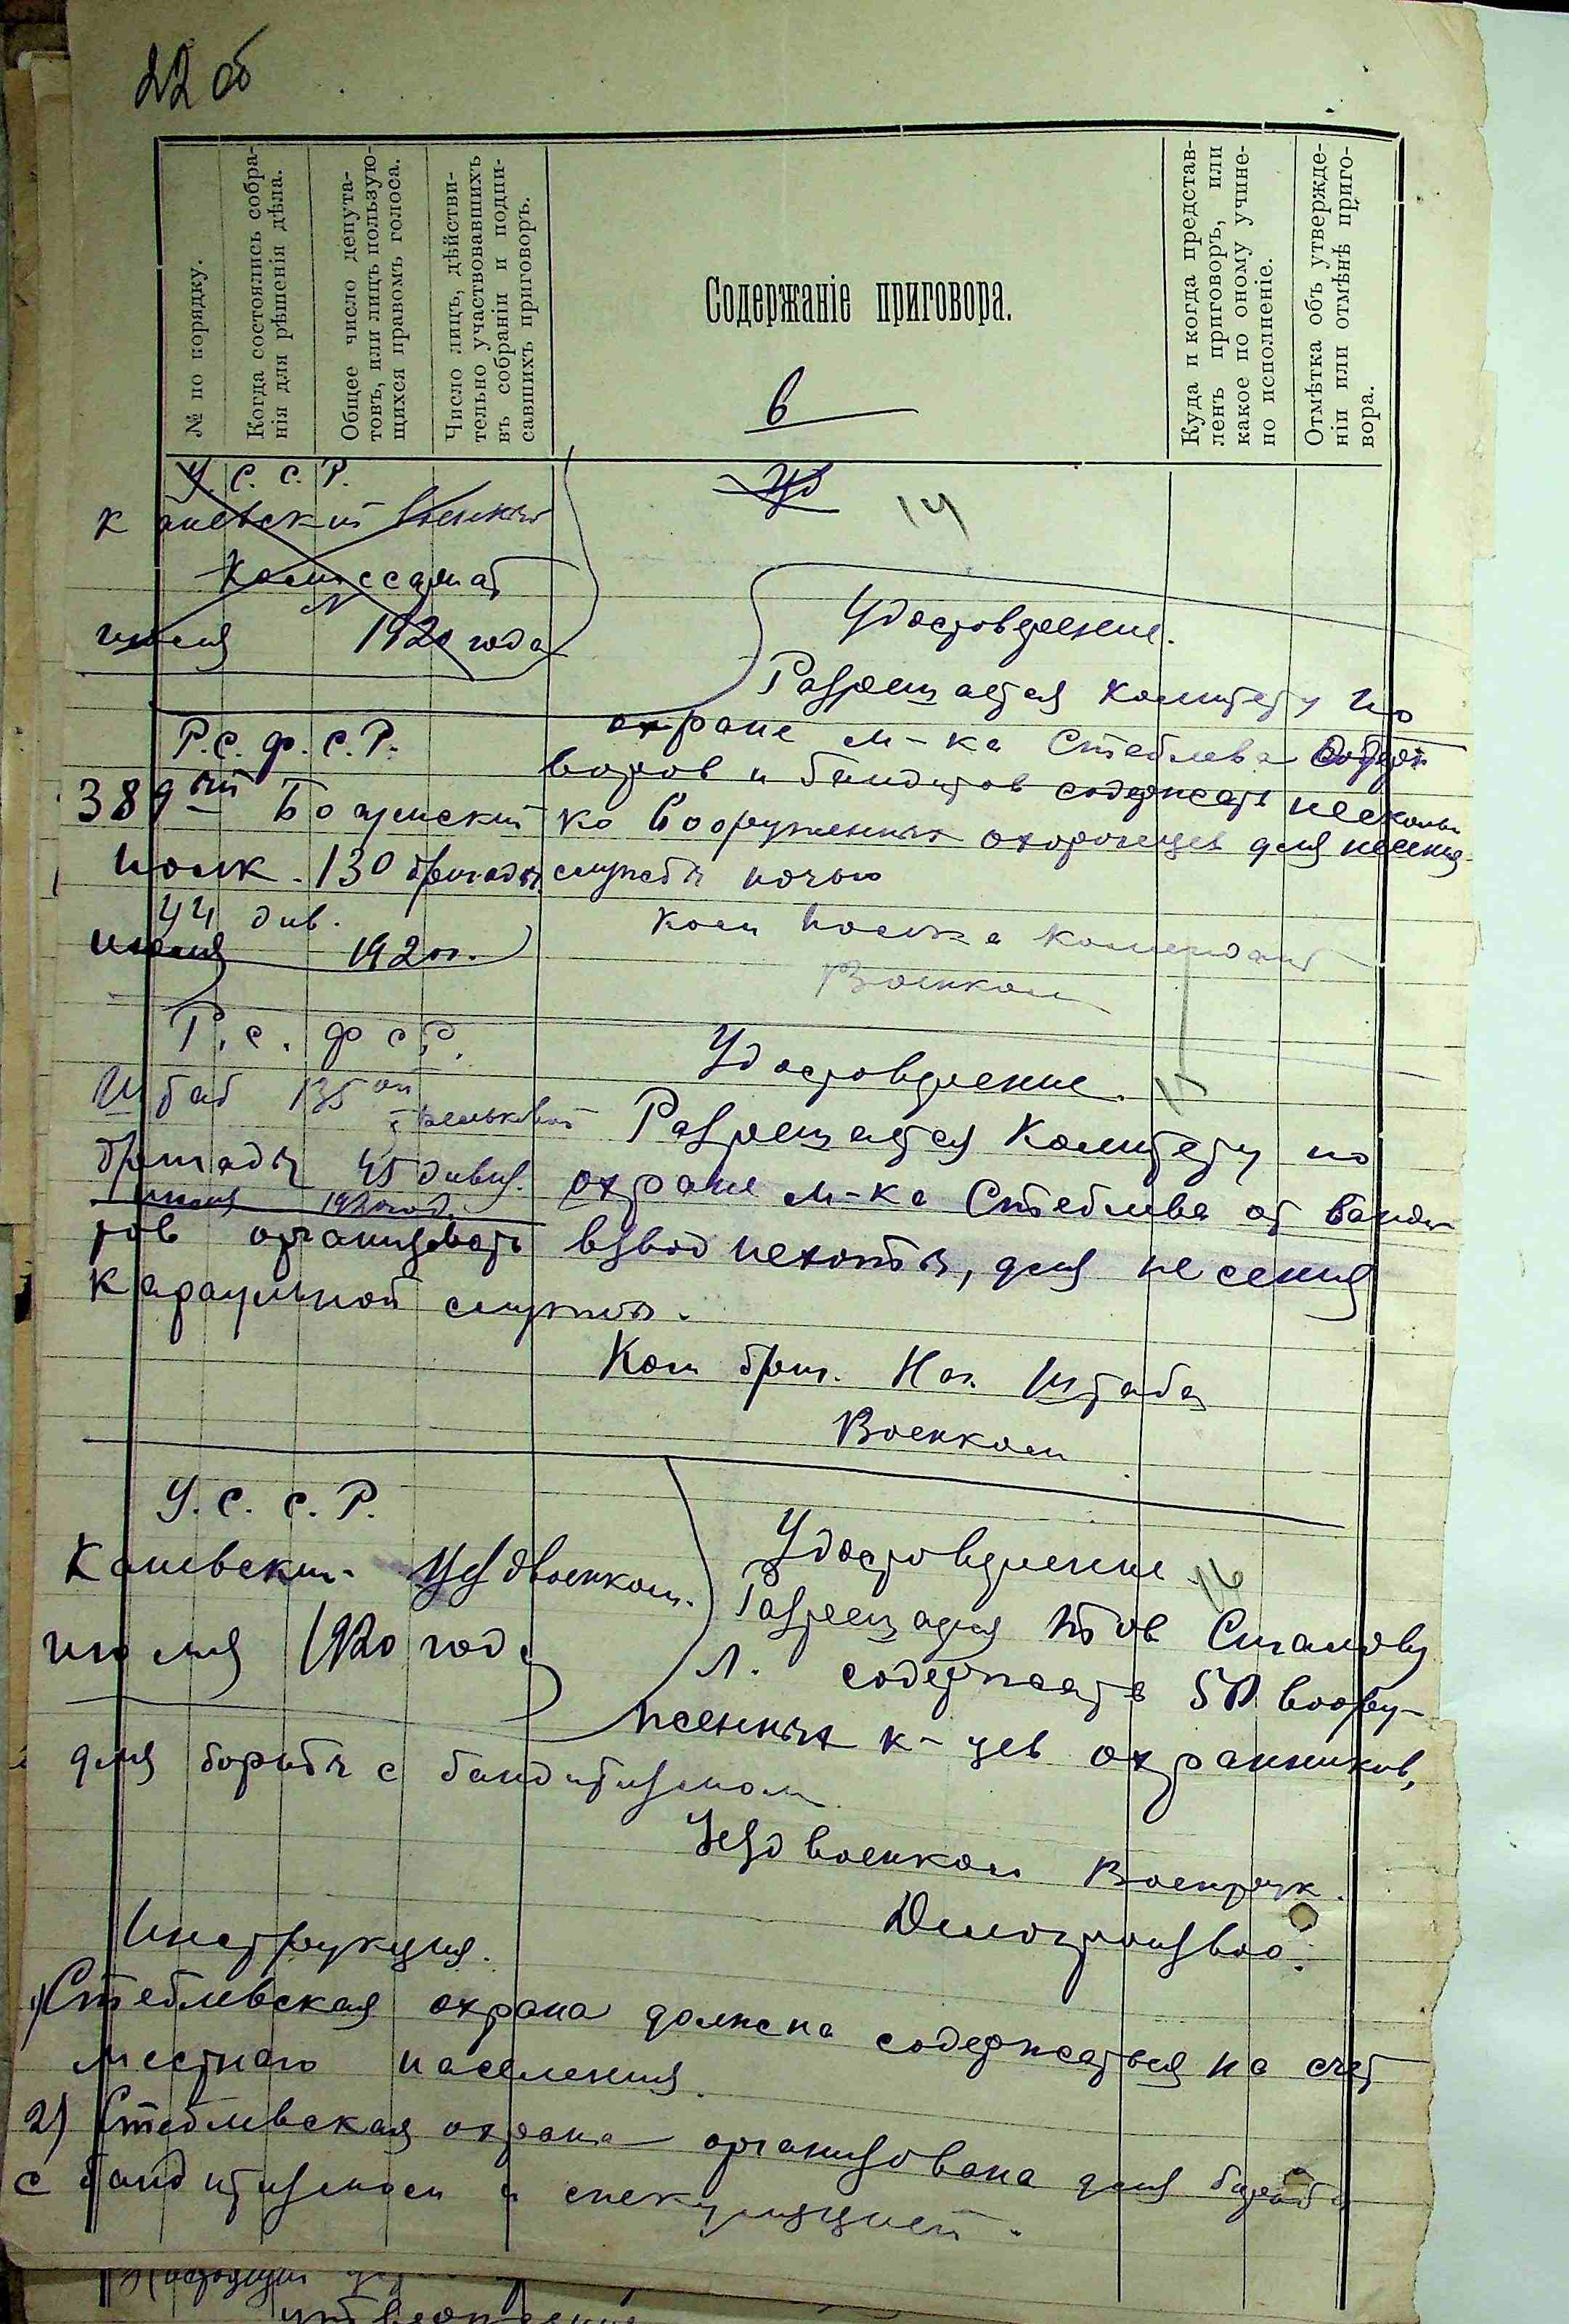 22 об
№ по порядку.
Когда состоялись собра-
нія для рѣшенія дѣла.
Общее число депута-
товъ, или лицъ пользую-
щихся правомъ голоса.
Число лицъ, дѣйстви-
тельно участвовавшихъ
въ собраніи и подпи-
савшихъ приговоръ.
Содержаніе приговора.
Куда и когда представ-
ленъ приговоръ, или
какое по оному учине-
но исполненіе.
Отмѣтка объ утвержде-
ніи или отмѣнѣ приго-
вора.
6
У. С. С. Р.
Каневский Военный
Комиссариат
июля 1920 года
14
Удостоверение.
Разрешается комитету по
охране м-ка Стеблева от
воров и бандитов содержать несколь
ко вооруженных охоронцев для несения
службы ночью
Ком полка Комендант
Военком
Р. С. Ф. С. Р.
389ый Богунский
полк. 130 бригады
44 див.
июля 1920г.
Р. С. Ф С. Р.
Штаб 135ой
стрелковой
бригады 45 дивиз.
июля 1920 год.
Удостоверение. 15
Разрешается Комитету по
охране м-ка Стеблева от банди
тов организовать взвод пехоты, для несения
караульной службы.
Ком бриг. Нач. Штаба
Военком
У. С. С. Р.
Каневский Уездвоенком.
июля 1920 года
Удостоверение 16
Разрешается тов
Л. содержать 50 воору-
женных к-цев охранников,
для борьбы с бандитизмом.
Уездвоенком Военрук.
Делопроизво.
Инструкция.
1) Стеблевская охрана должна содержаться на счет
местнаго населения.
2) Стеблевская охрана организована для борьбы
с бандитизмом и спекуляцией.